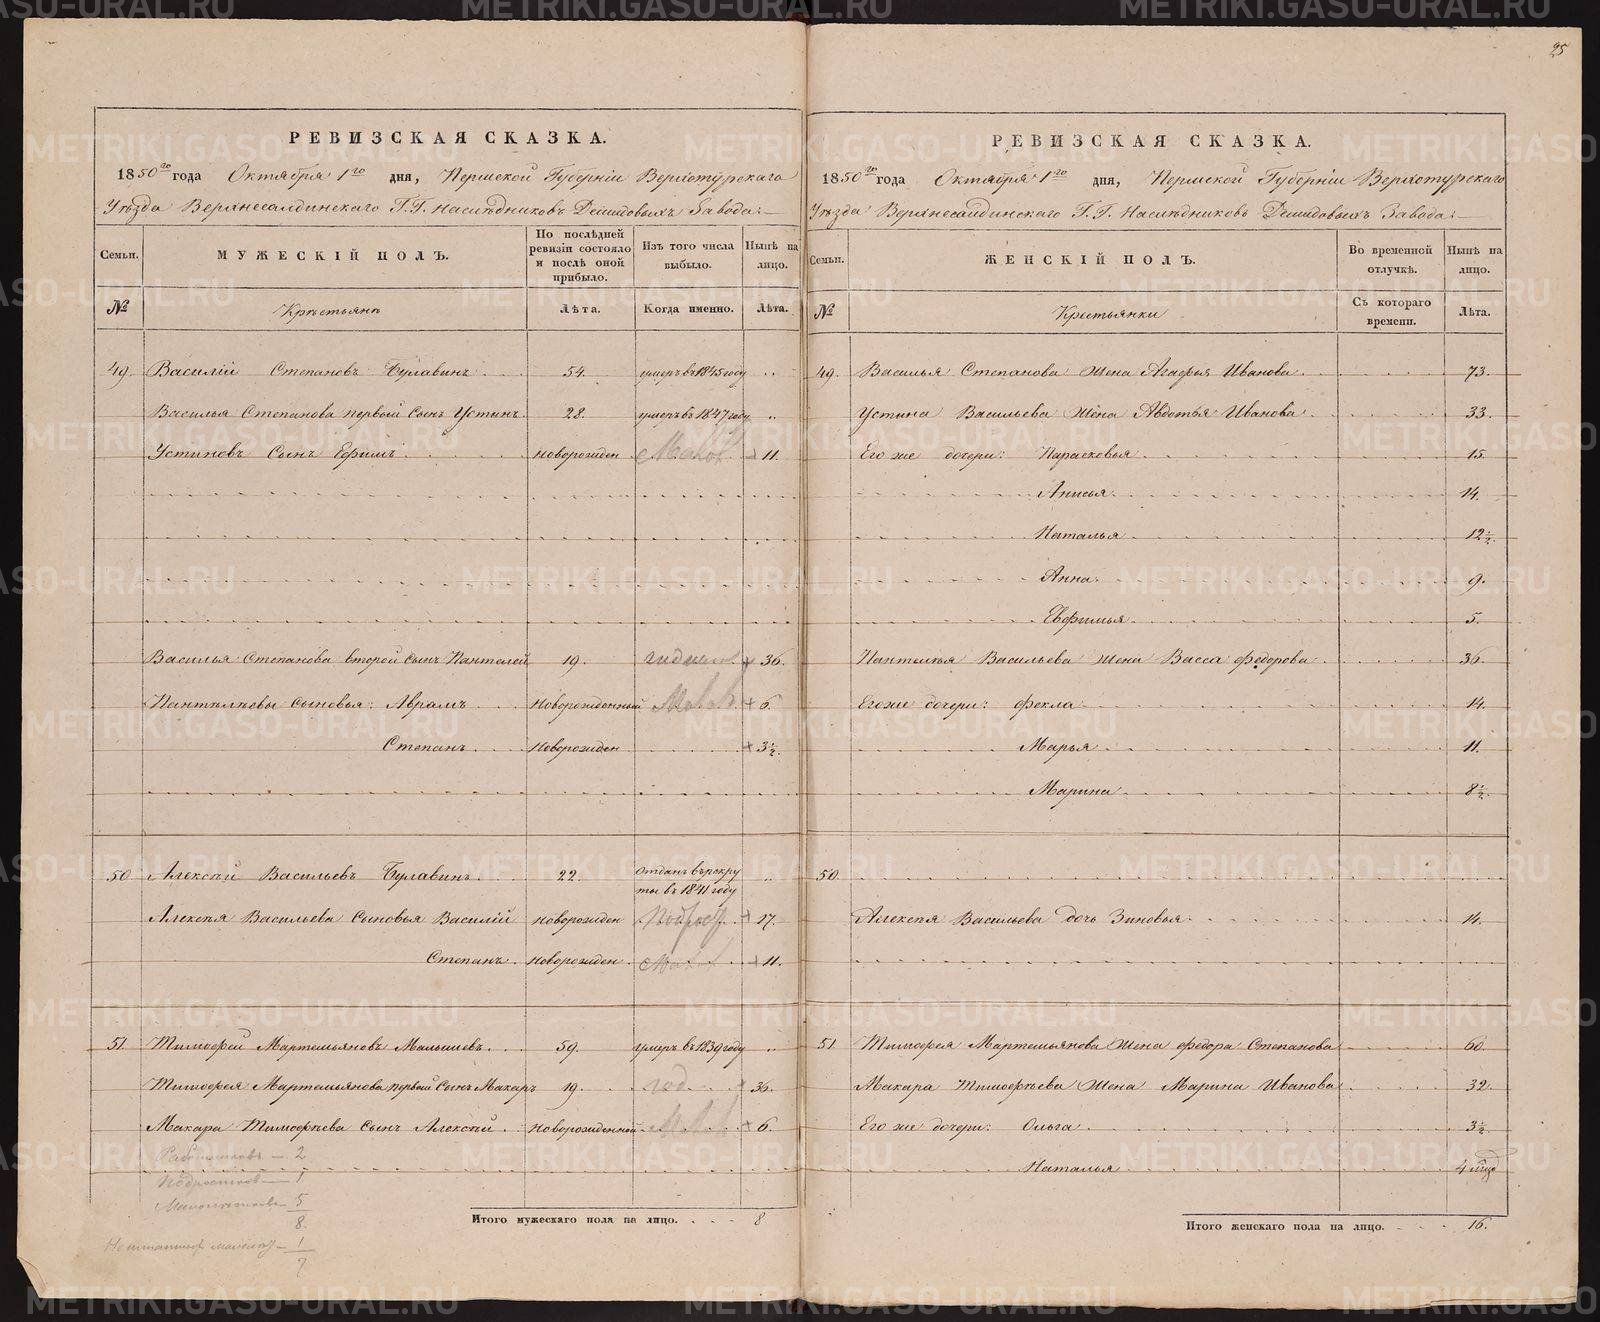 25
РЕВИЗСКАЯ СКАЗКА.
1850го года Октября 1го дня, Пермской Губерніи Верхотурскаго
Уѣзда Верхнесалдинскаго Г.Г. Наслѣдниковъ Демидовыхъ Завода:
Семьи. МУЖЕСКІЙ ПОЛЪ. По послѣдней ревизіи состояло и послѣ оной прибыло. Изъ того числа выбыло. Нынѣ на лицо.
№ Крѣстьянъ Лѣта. Когда именно. Лѣта.
49. Василій Степановъ Булавинъ 54. умеръ въ 1845 году
Василья Степанова первой Сынъ Устинъ 28. умеръ въ 1847 году
Устиновъ Сынъ Ефимъ новорожден Малол 11.
Василья Степанова второй сынъ Пантелей 19. 36.
Пантелѣевы сыновья: Аврамъ Новорожденный Малол 6.
Степанъ Новорожден 3½.
50. Алексѣй Васильевъ Булавинъ 22. отданъ въ рекруты въ 1841 году
Алексѣя Васильева Сыновья Василій новорожден Подрост 17.
Степанъ Новорожден Малол 11.
51. Тимофей Мартемьяновъ Малышевъ 59. умеръ въ 1839 году
Тимофея Мартемьянова первый Сынъ Макаръ 19. год 36.
Макара Тимофѣева сынъ Алексѣй Новорожденной Малол 6.
Работниковъ — 2
Подростков — 1
Малолѣтковъ 5
8.
1
7
Итого мужескаго пола на лицо. 8
РЕВИЗСКАЯ СКАЗКА.
1850го года Октября 1го дня, Пермской Губерніи Верхотурскаго
Уѣзда Верхнесалдинскаго Г.Г. Наслѣдниковъ Демидовыхъ Завода:
Семьи. ЖЕНСКІЙ ПОЛЪ. Во временной отлучкѣ. Нынѣ на лицо.
№ Крестьянки Съ котораго времени. Лѣта.
49. Василья Степанова жена Агафья Иванова 73.
Устина Васильева жена Авдотья Иванова 33.
Его же дочери: Парасковья 15.
Анисья 14.
Наталья 12½.
Анна 9.
Евфимья 5.
Пантелѣя Васильева жена Васса Федорова 36.
Его же дочери: Фекла 14.
Марья 11.
Марина 8½.
50.
Алексѣя Васильева дочь Зиновья 14.
51. Тимофея Мартемьянова жена Федора Степанова 60.
Макара Тимофѣева жена Марина Иванова 32.
Его же дочери: Ольга 3½.
Наталья
Итого женскаго пола на лицо. 16.
METRIKI.GASO-URAL.RU